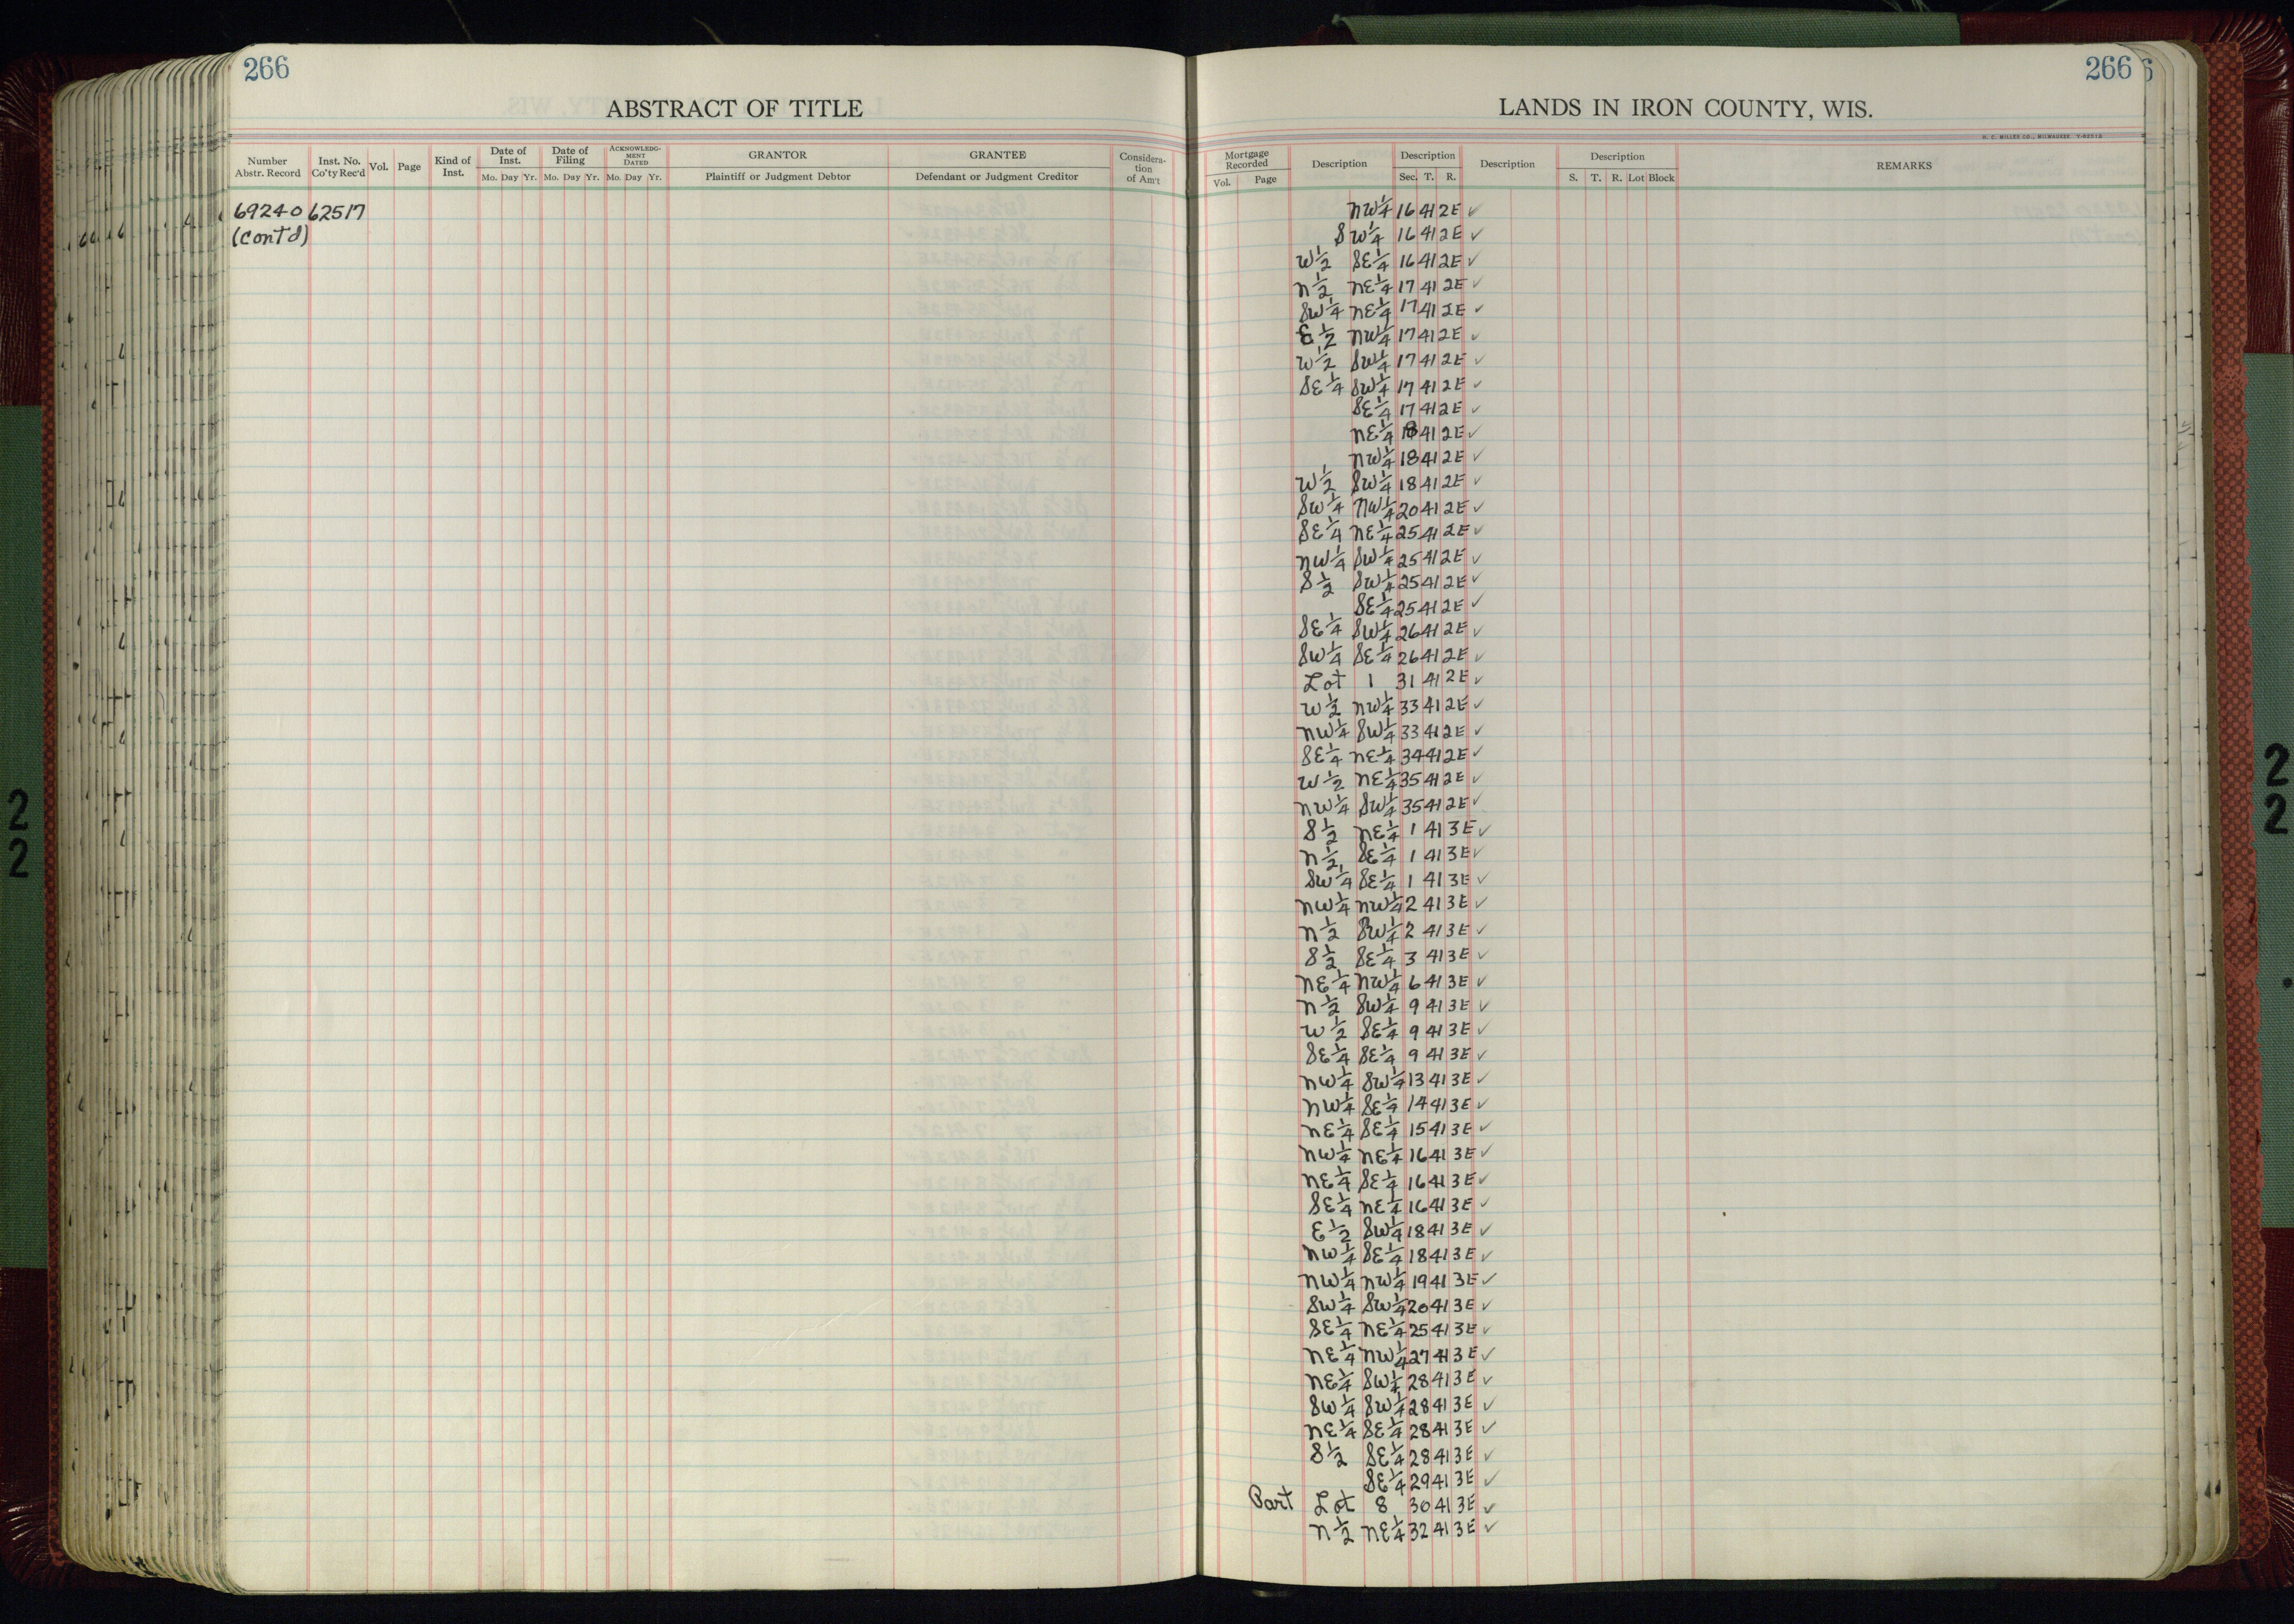 266
ABSTRACT OF TITLE
Number Abstr. Record Inst. No. Co'ty Rec'd Vol. Page Kind of Inst. Date of Inst. Mo. Day Yr. Date of Filing Mo. Day Yr. ACKNOWLEDG-MENT DATED Mo. Day Yr. GRANTOR Plaintiff or Judgment Debtor GRANTEE Defendant or Judgment Creditor Considera-tion of Am't
69240 62517
(Cont'd)
266
LANDS IN IRON COUNTY, WIS.
H. C. MILLER CO., MILWAUKEE
Mortgage Recorded Vol. Page Description Description Sec. T. R. Description Description S. T. R. Lot Block REMARKS
NW¼ 16 41 2E ✓
SW¼ 16 41 2E ✓
W½ SE¼ 16 41 2E ✓
N½ NE¼ 17 41 2E ✓
SW¼ NE¼ 17 41 2E ✓
E½ NW¼ 17 41 2E ✓
W½ SW¼ 17 41 2E ✓
SE¼ SW¼ 17 41 2E ✓
SE¼ 17 41 2E ✓
NE¼ 18 41 2E ✓
NW¼ 18 41 2E ✓
W½ SW¼ 18 41 2E ✓
SW¼ NW¼ 20 41 2E ✓
SE¼ NE¼ 25 41 2E ✓
NW¼ SW¼ 25 41 2E ✓
S½ SW¼ 25 41 2E ✓
SE¼ 25 41 2E ✓
SE¼ SW¼ 26 41 2E ✓
SW¼ SE¼ 26 41 2E ✓
Lot 1 31 41 2E ✓
W½ NW¼ 33 41 2E ✓
NW¼ SW¼ 33 41 2E ✓
SE¼ NE¼ 34 41 2E ✓
W½ NE¼ 35 41 2E ✓
NW¼ SW¼ 35 41 2E ✓
S½ NE¼ 1 41 3E ✓
N½ SE¼ 1 41 3E ✓
SW¼ SE¼ 1 41 3E ✓
NW¼ NW¼ 2 41 3E ✓
N½ SW¼ 2 41 3E ✓
S½ SE¼ 3 41 3E ✓
NE¼ NW¼ 6 41 3E ✓
N½ SW¼ 9 41 3E ✓
W½ SE¼ 9 41 3E ✓
SE¼ SE¼ 9 41 3E ✓
NW¼ SW¼ 13 41 3E ✓
NW¼ SE¼ 14 41 3E ✓
NE¼ SE¼ 15 41 3E ✓
NW¼ NE¼ 16 41 3E ✓
NE¼ SE¼ 16 41 3E ✓
SE¼ NE¼ 16 41 3E ✓
E½ SW¼ 18 41 3E ✓
NW¼ SE¼ 18 41 3E ✓
NW¼ NW¼ 19 41 3E ✓
SW¼ SW¼ 20 41 3E ✓
SE¼ NE¼ 25 41 3E ✓
NE¼ NW¼ 27 41 3E ✓
NE¼ SW¼ 28 41 3E ✓
SW¼ SW¼ 28 41 3E ✓
NE¼ SE¼ 28 41 3E ✓
S½ SE¼ 28 41 3E ✓
SE¼ 29 41 3E ✓
Part Lot 8 30 41 3E ✓
N½ NE¼ 32 41 3E ✓
2
2
2
2